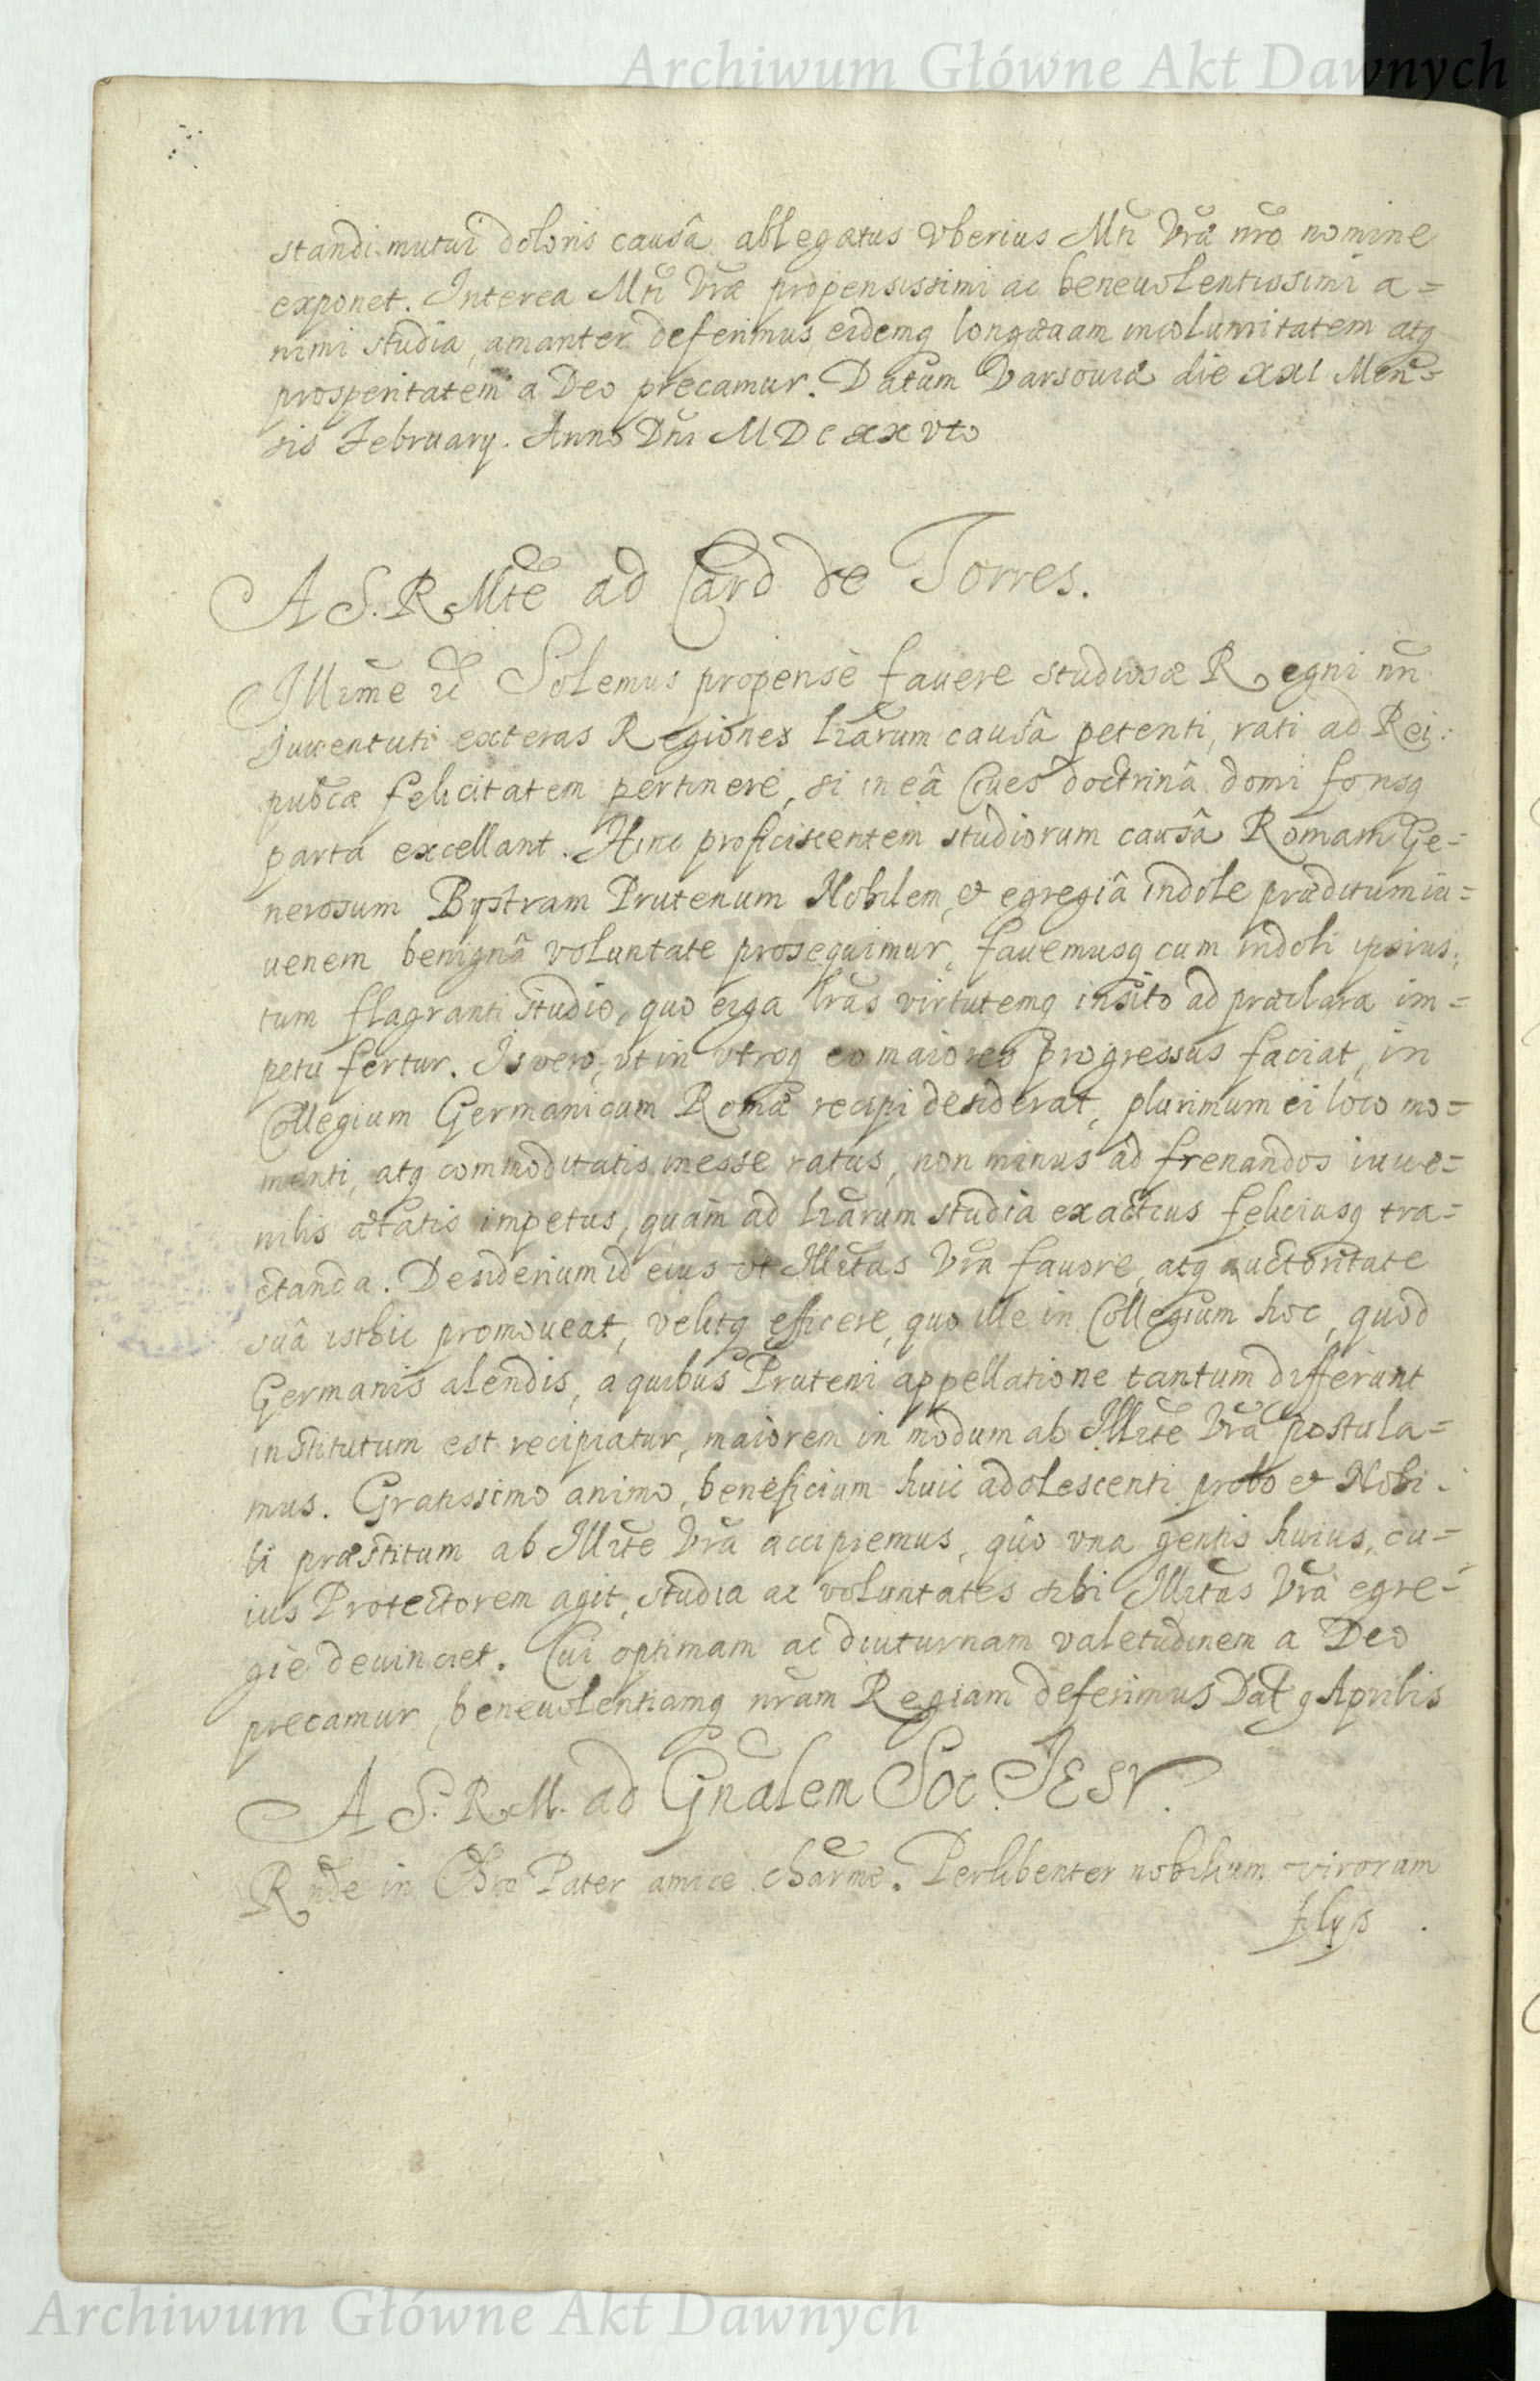 Archiwum Główne Akt Dawnych
standi mutui doloris causâ ablegatus vberius Mti Vrã nrõ nomine
exponet. Interea Mti Vræ propensissimi ac beneuolentissimi a=
nimi studia, amanter deferimus, eidemq longæuam incolumitatem atq
prosperitatem a Deo precamur. Datum Varsouiæ die XXI Men=
sis February. Anno Dni MDCXXVto
A S. R. Mte ad Card de Torres.
Illrme Solemus propensè fauere studiosæ Regni nri
Juuentuti exteras Regiones lrãrum causâ petenti, rati ad Rei:
pubcæ felicitatem pertinere, si in eâ Ciues doctrinâ domi forisq
parta excellant. Hinc proficiscentem studiorum causâ Romam Ge=
nerosum Bystram Prutenum Nobilem, et egregiâ indole præditum iu=
uenem benignâ voluntate prosequimur, fauemusq cum indoli ipsius,
tum flagranti studio, quo erga lrãs virtutemq insito ad præclara im=
petu fertur. Is vero, vt in vtroq eo maiores progressus faciat, in
Collegium Germanicum Romæ recipi desiderat, plurimum ei loco mo=
menti, atq commoditatis inesse ratus, non minus ad frenandos iuue=
nilis ætatis impetus, quàm ad lrãrum studia exactius feliciusq tra=
ctanda. Desiderium id eius vt Illrtas Vrã fauore, atq auctoritate
suâ isthic promoueat, velitq efficere, quo ille in Collegium hoc, quod
Germanis alendis, a quibus Pruteni appellatione tantum differunt
institutum est recipiatur, maiorem in modum ab Illrte Vrã postula=
mus. Gratissimo animo, beneficium huic adolescenti probo et Nobi=
li præstitum ab Illrte Vrã accipiemus, quo vna gentis huius, cu=
ius Protectorem agit, studia ac voluntates sibi Illrtas Vrã egre=
giè deuinciet. Cui optimam ac diuturnam valetudinem a Deo
precamur, beneuolentiamq nrãm Regiam deferimus Dat 9 Aprilis
A S. R. M. ad Gnãlem Soc. JESV.
Rnde in Chro Pater amice charme. Perlibenter nobilium virorum
filys
Archiwum Główne Akt Dawnych